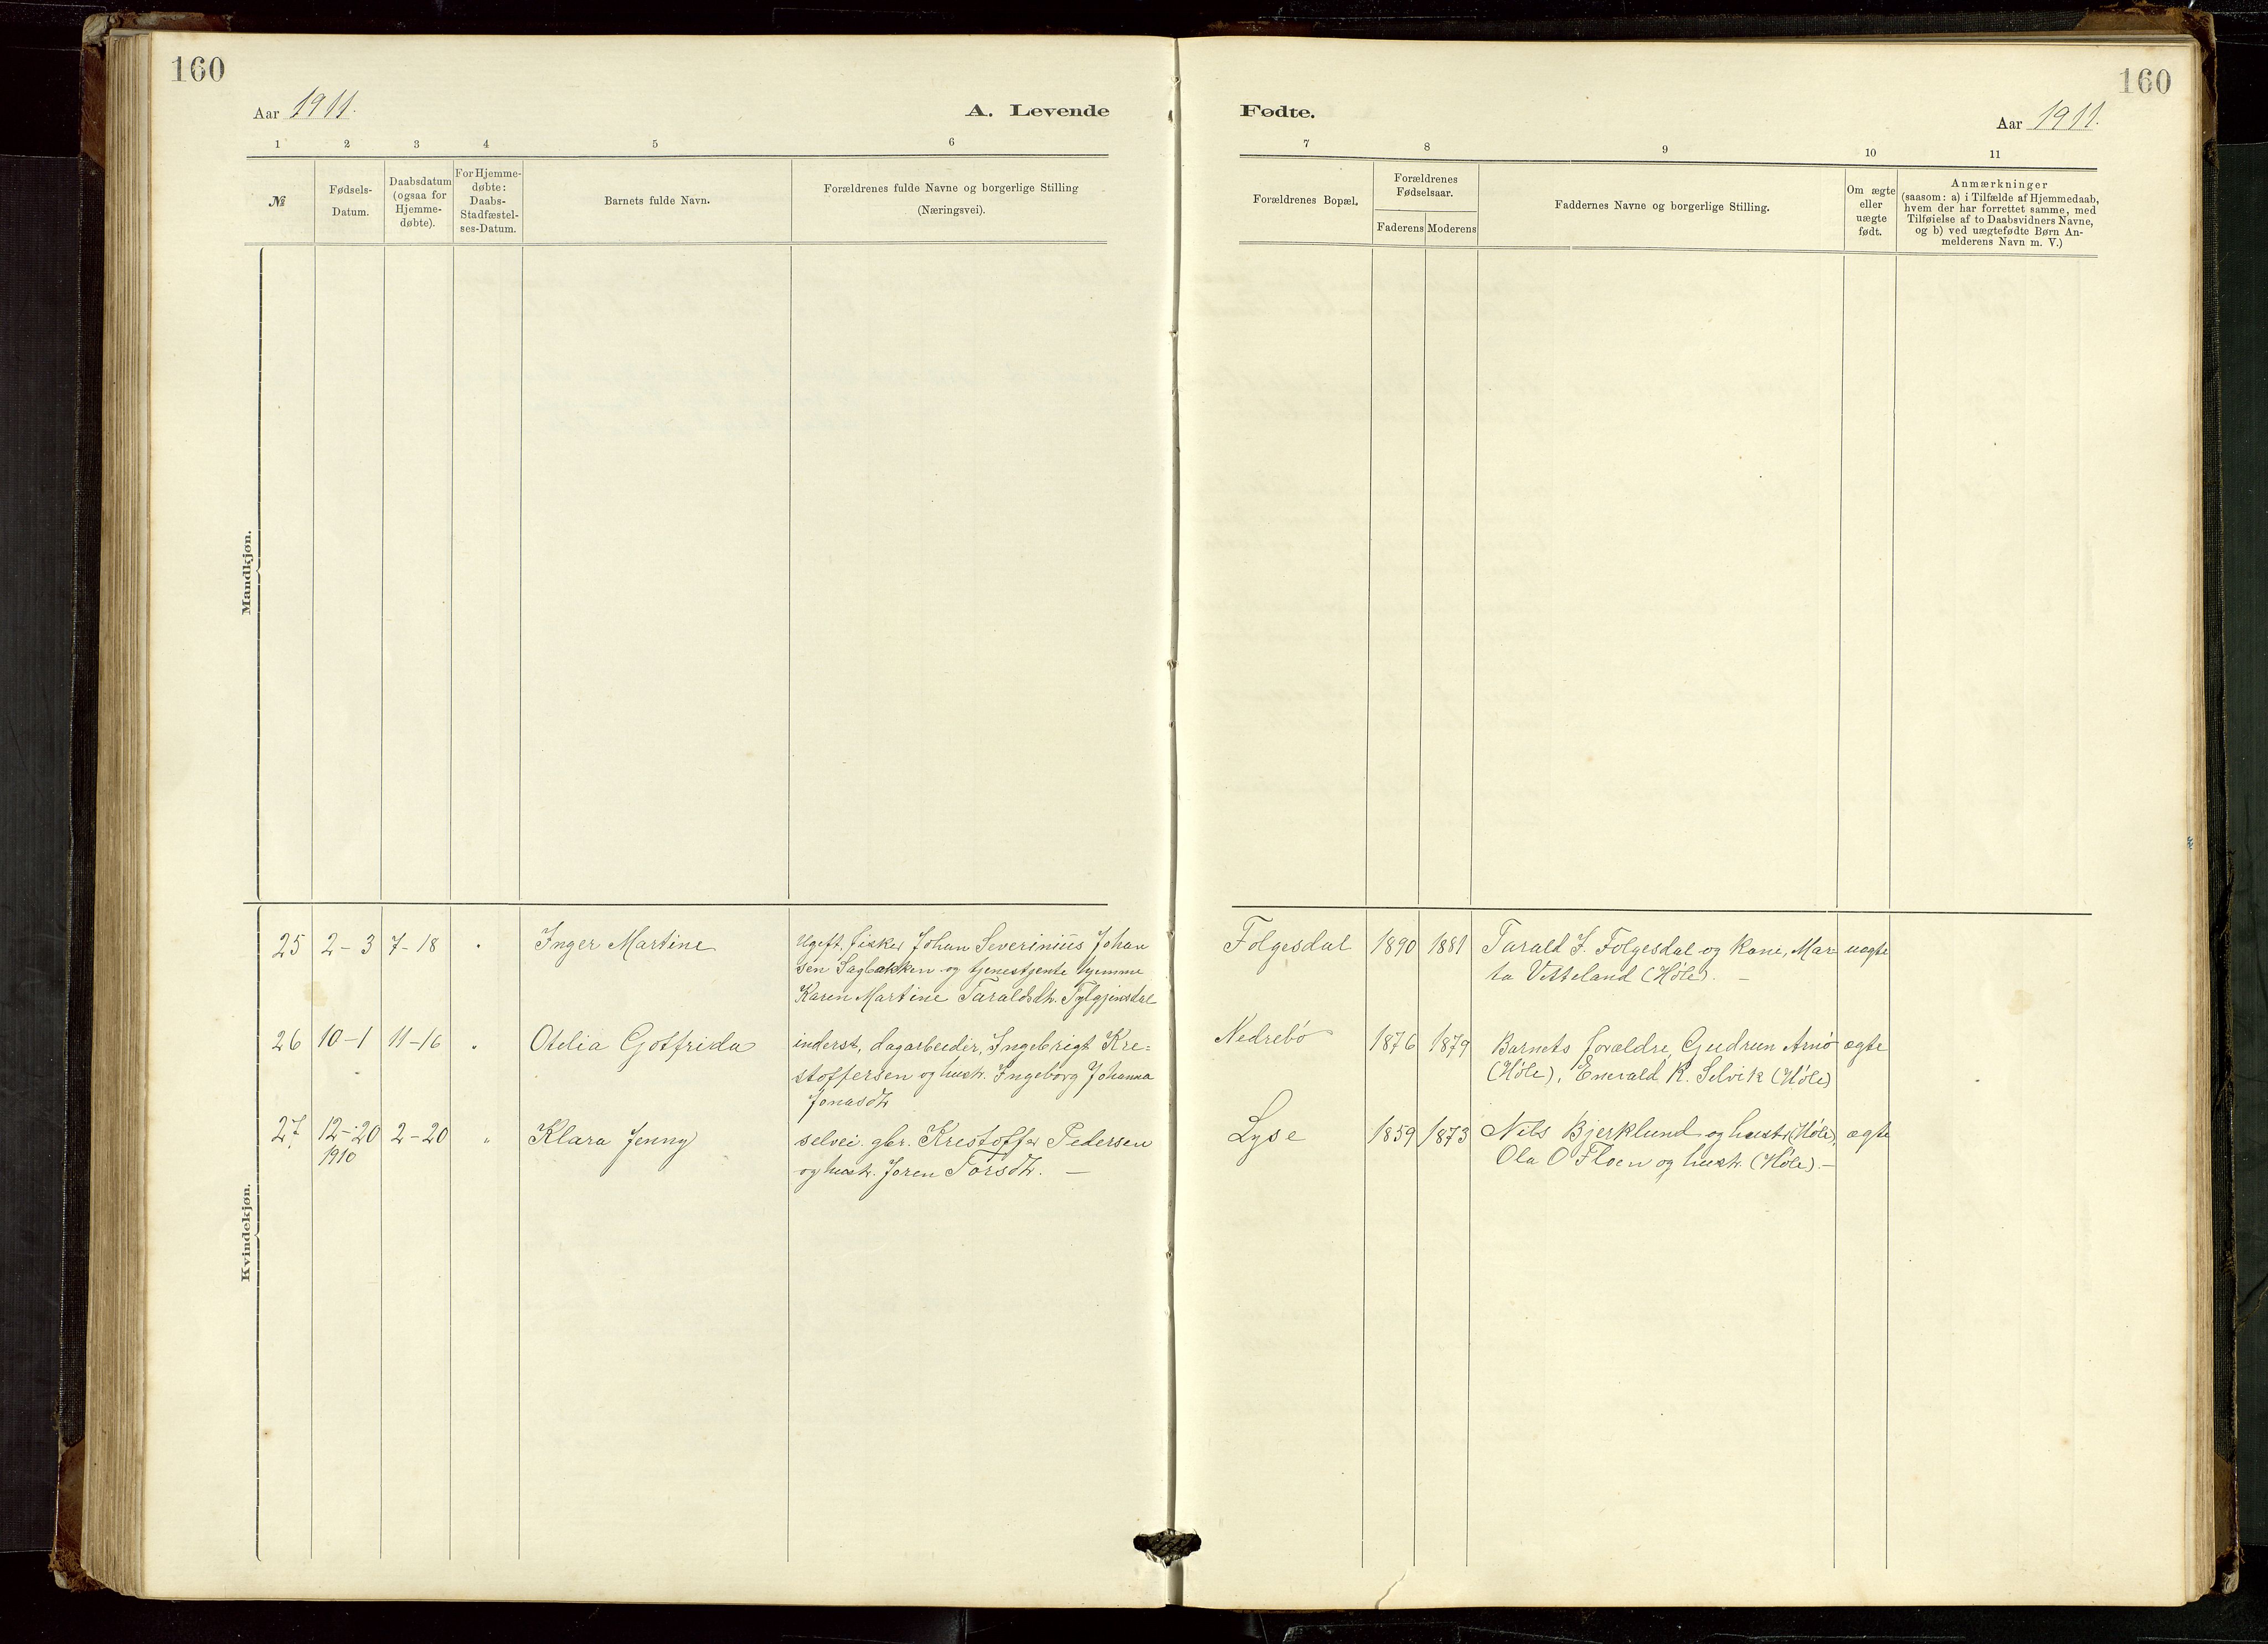 160
Aar 1911.
A. Levende
1 2 3 4 5 6
№
Fødsels-Datum.
Daabsdatum (ogsaa for Hjemme-døbte).
For Hjemme-døbte: Daabs-Stadfæstel-ses-Datum.
Barnets fulde Navn.
Forældrenes fulde Navne og borgerlige Stilling
(Næringsvei).
Mandkjøn.
Kvindekjøn.
25 2-3 7-18 " Inger Martine ugift, fisker Johan Severinius Johan
sen Sagbakken og tjenestjente hjemme
Karen Martine Taraldsdtr.
26 10-1 11-16 " Otelia Gotfrida inderst, dagarbeider, Ingebrigt Kre=
stoffersen og hustr. Ingeborg Johanna
Jonasdtr
27 12-20 2-20 " Klara Jenny selvei. gbr. Krestoffer Pedersen
1910 og hustr. Joren Torsdtr. —
160
Fødte.
Aar 1911.
7 8 9 10 11
Forældrenes Bopæl.
Forældrenes Fødselsaar.
Faderens Moderens
Faddernes Navne og borgerlige Stilling.
Om ægte eller uægte født.
Anmærkninger
(saasom: a) i Tilfælde af Hjemmedaab,
hvem der har forrettet samme, med
Tilføielse af to Daabsvidners Navne,
og b) ved uægtefødte Børn An-
melderens Navn m. V.)
Folgesdal 1890 1881 Tarald J. Folgesdal og kone, Mar= uægte
ta Vetteland (Høle). —
Nedrebø 1876 1879 Barnets forældre, Gudrun Arnø ægte
(Høle), Enevald K. Selvik (Høle)
Lyse 1859 1873 Nils Bjerklund og hustr (Høle), ægte
Ola O Floen og hustr. (Høle). —